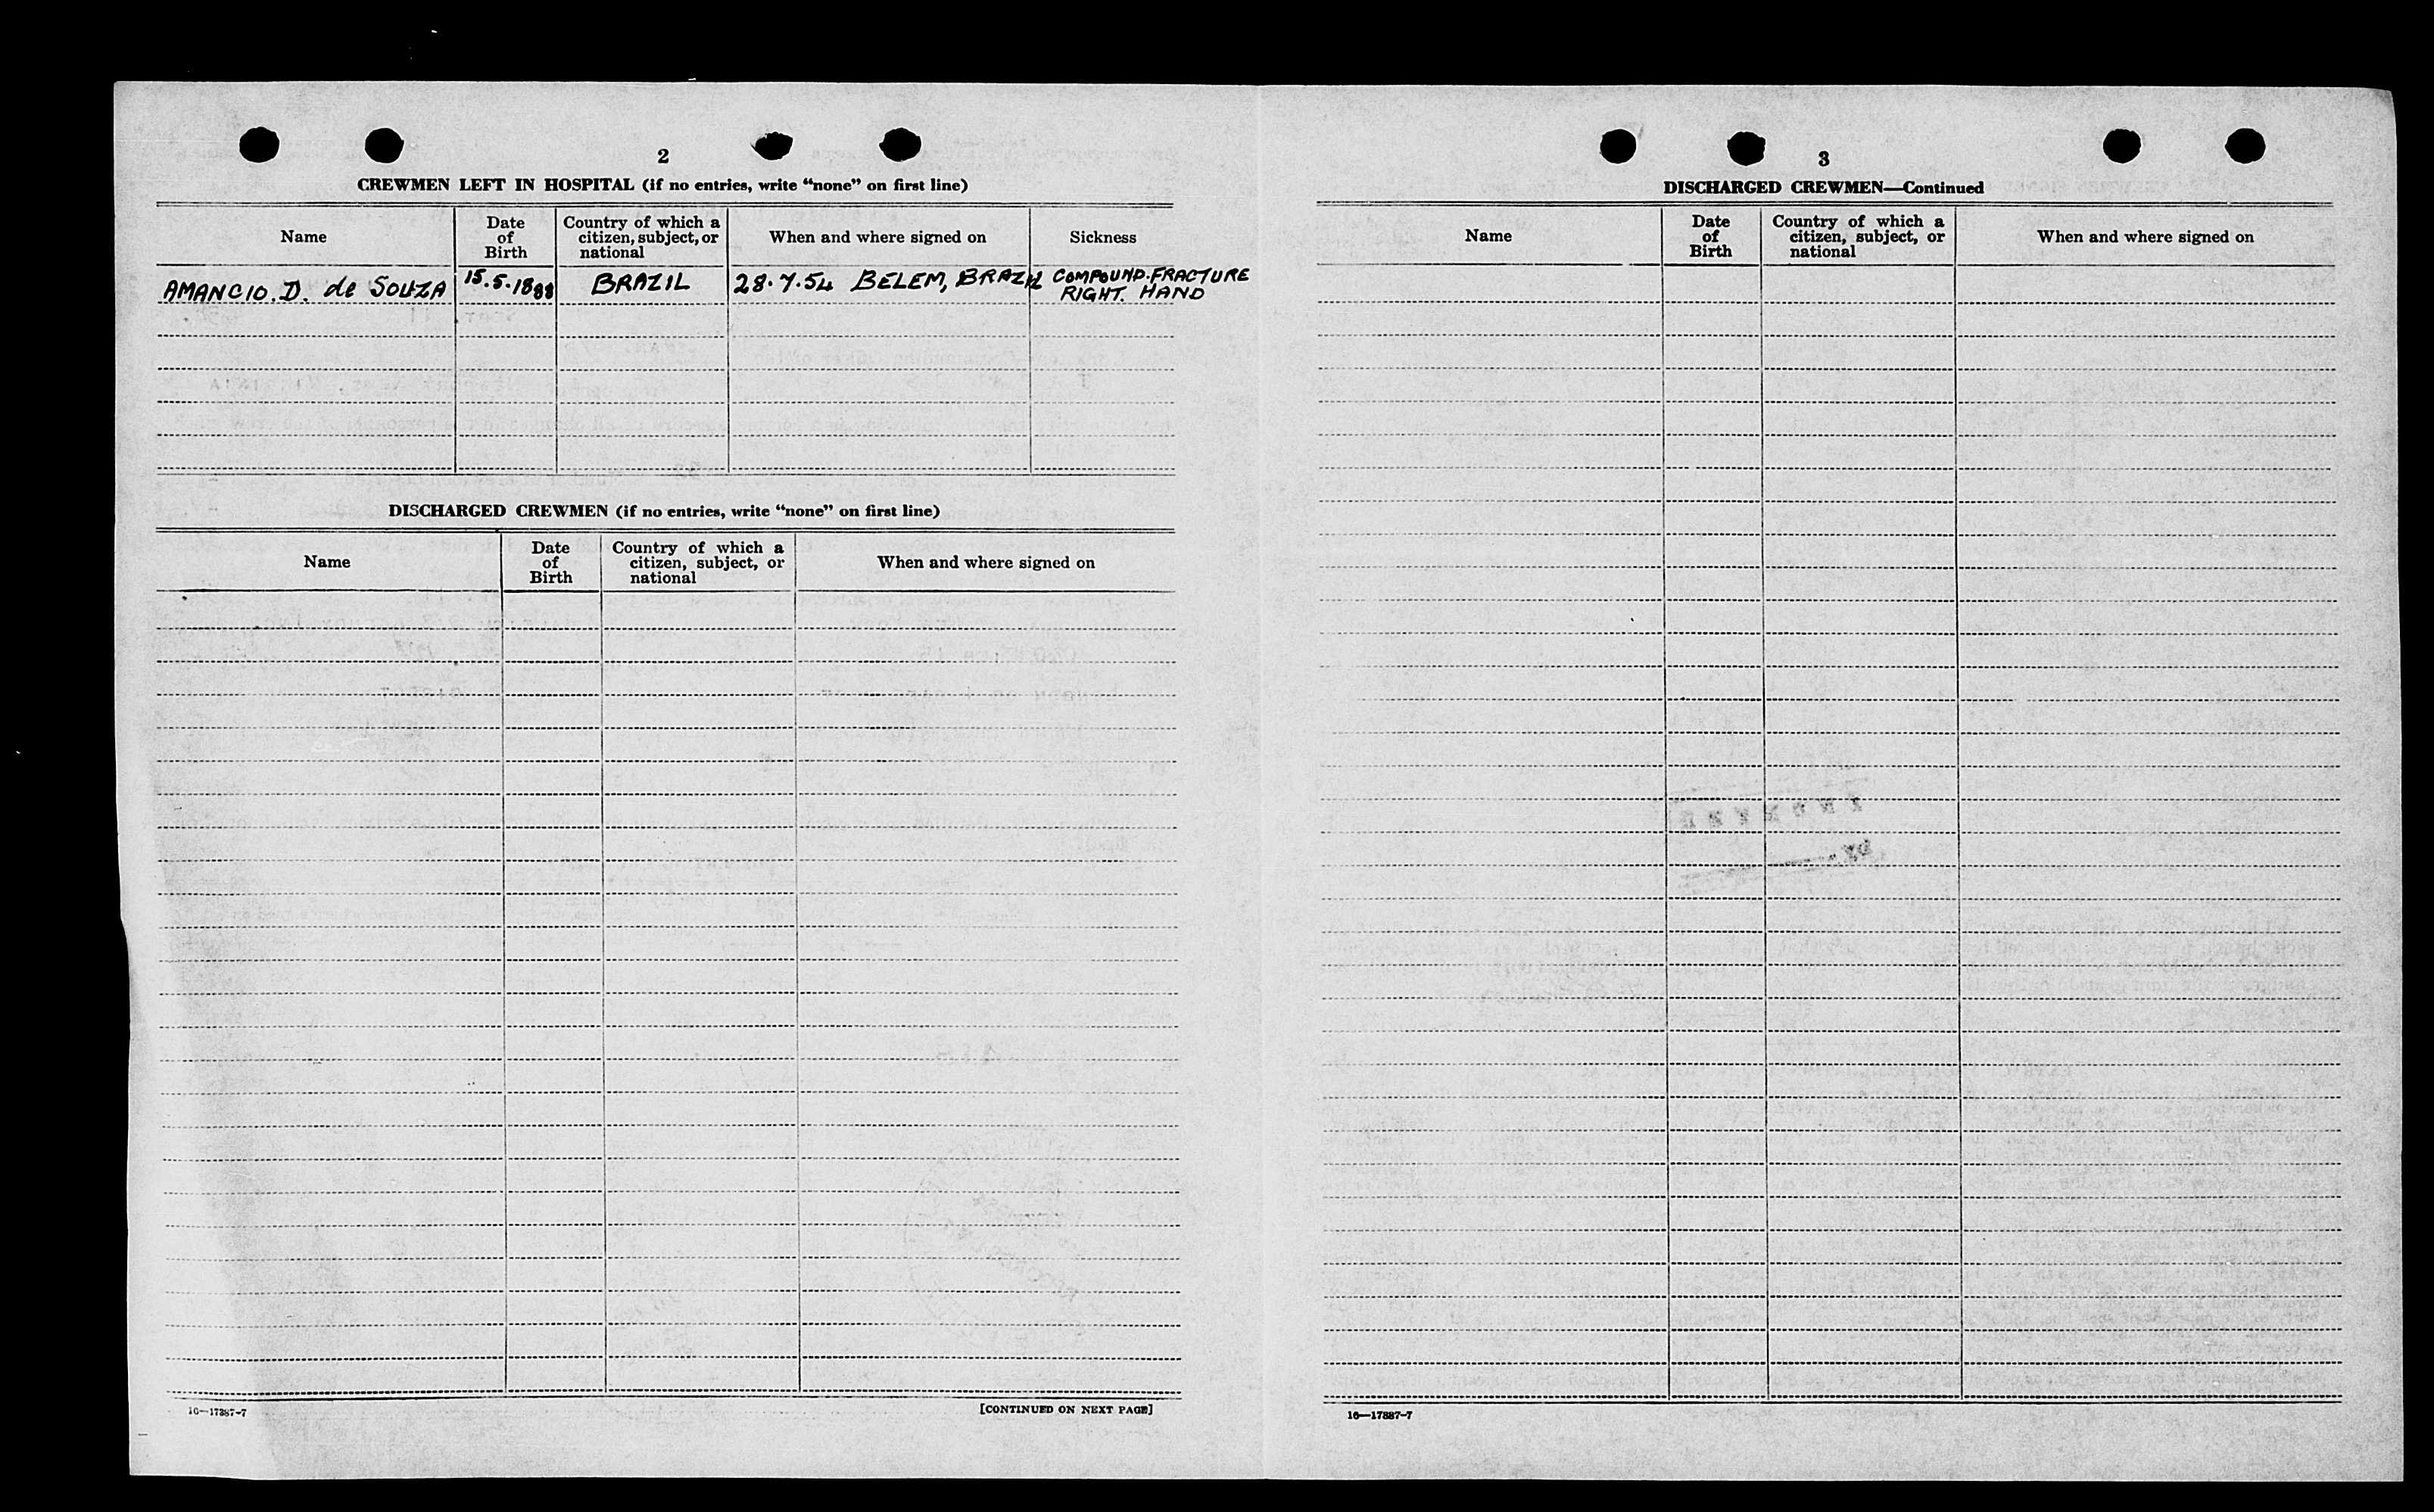 2
CREWMEN LEFT IN HOSPITAL (if no entries, write “none” on first line)
Name
Date
of
Birth
Country of which a
citizen, subject, or
national
When and where signed on
Sickness
AMANCIO. D. de SOUZA 15.5.1888 BRAZIL 28.7.54 BELEM, BRAZIL COMPOUND. FRACTURE
RIGHT. HAND
DISCHARGED CREWMEN (if no entries, write “none” on first line)
Name
Date
of
Birth
Country of which a
citizen, subject, or
national
When and where signed on
16—17387-7
[CONTINUED ON NEXT PAGE]
3
DISCHARGED CREWMEN—Continued
Name
Date
of
Birth
Country of which a
citizen, subject, or
national
When and where signed on
16—17387-7